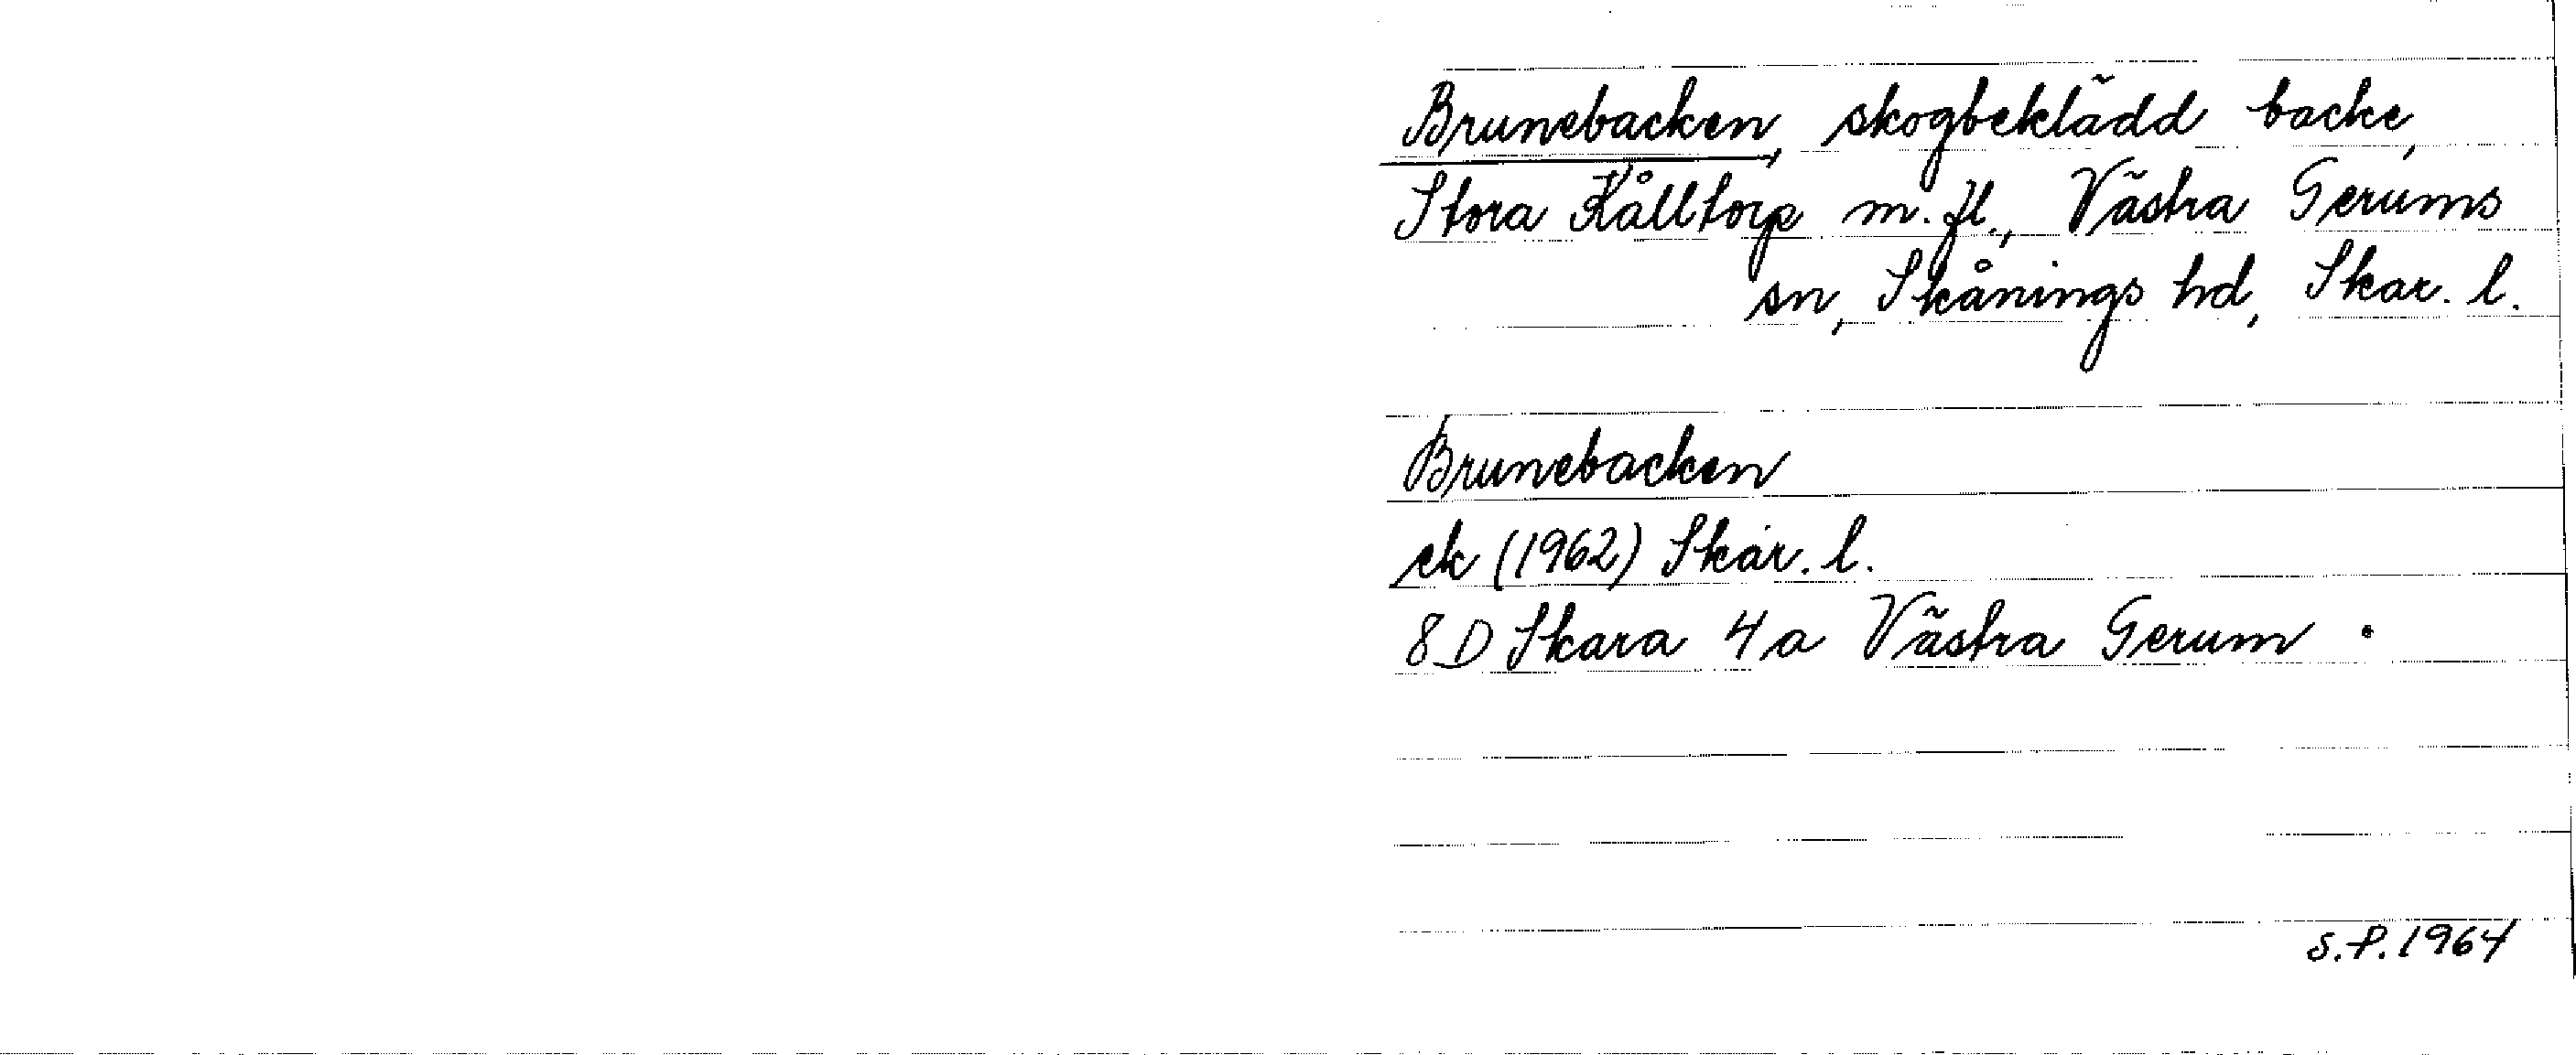 Brunebacken, skogbeklädd backe,
Stora Kålltorp m. fl., Västra Gerums
sn, Skånings hd, Skar. l.
Brunebacken
ek (1962) Skar. l.
8 D Skara 4 a Västra Gerum
S.P. 1964